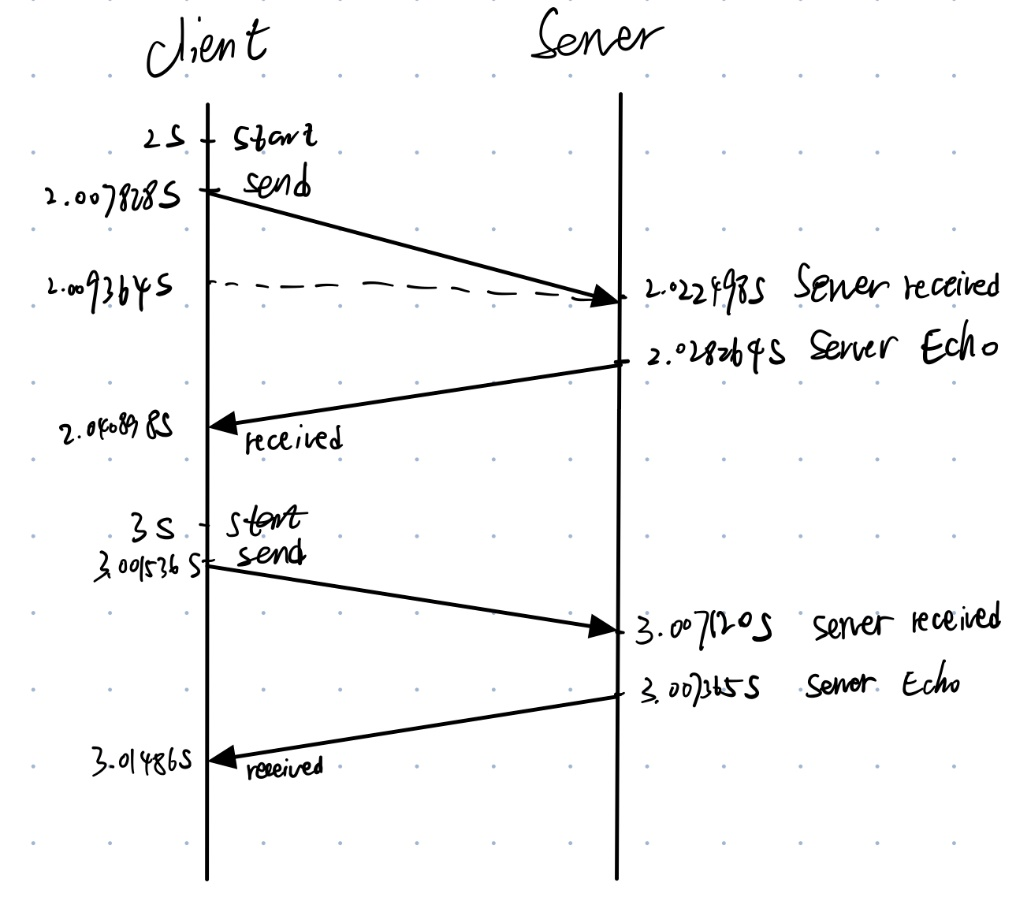 Client Server
2S start
2.007828S send
2.009364S 2.022498S Server received
2.028264S Server Echo
2.040898S received
3S start
3.001536S send
3.007120S server received
3.007365S Server Echo
3.01486S received